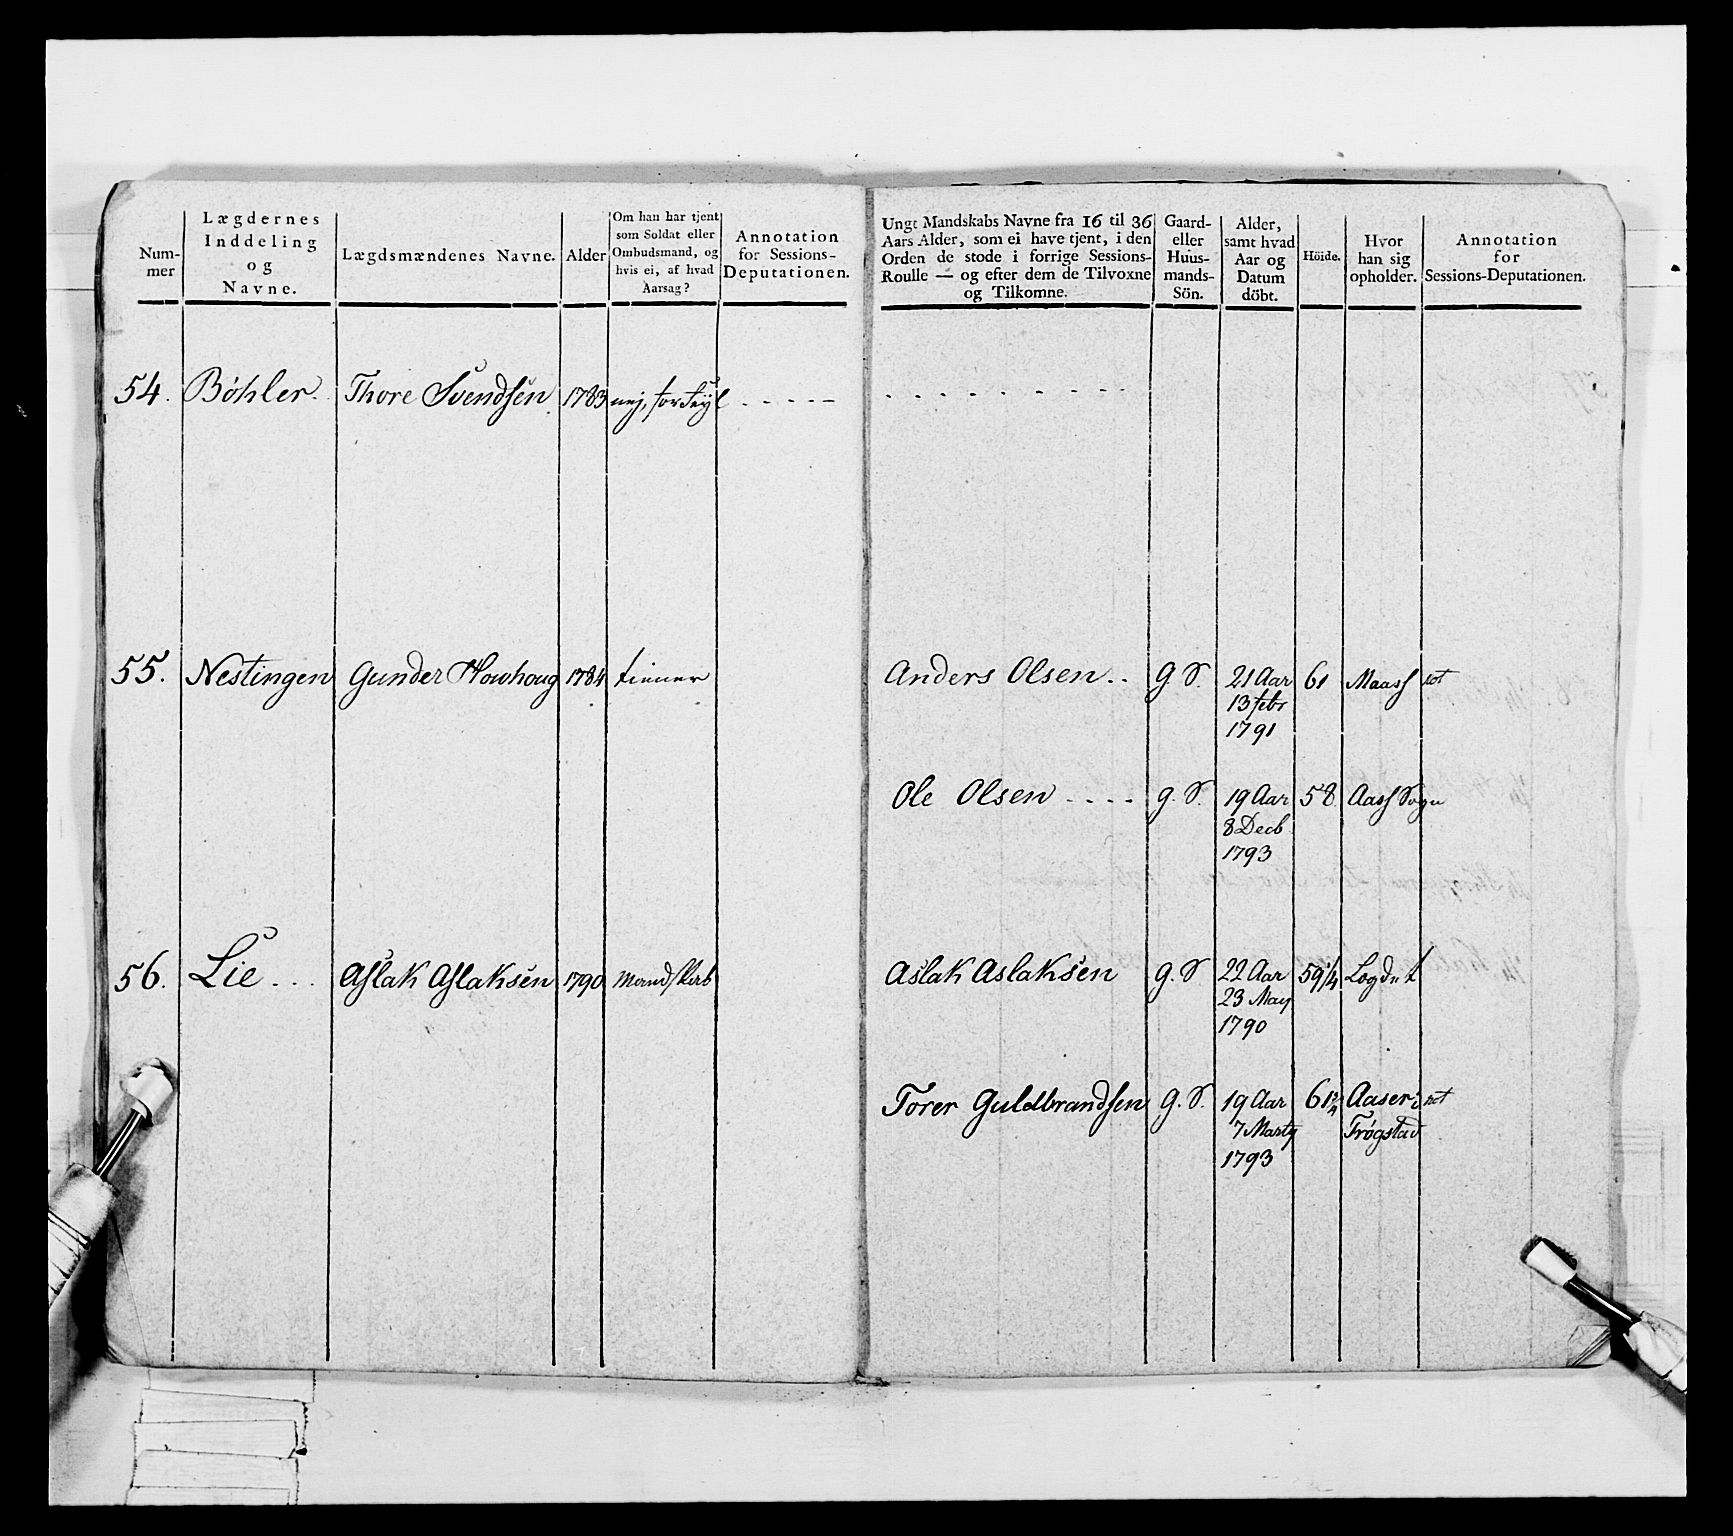 Num-
mer
Lægdernes
Inddeling
og
Navne.
Lægdsmændenes Navne.
Alder
Om han har tjent
som Soldat eller
Ombudsmand, og
hvis ei, af hvad
Aarsag?
Annotation
for Sessions-
Deputationen.
Ungt Mandskabs Navne fra 16 til 36
Aars Alder, som ei have tjent, i den
Orden de stode i forrige Sessions-
Roulle — og efter dem de Tilvoxne
og Tilkomne.
Gaard-
eller
Huus-
mands-
Sön.
Alder,
samt hvad
Aar og
Datum
döbt.
Höide.
Hvor
han sig
opholder.
Annotation
for
Sessions-Deputationen.
54. Bøhler. Thore Svendsen 1783 nej, for Fejl - - - - -
55. Nestingen Gunder Howhoug 1784 tiener
Anders Olsen.. G. S. 21 Aar 61 Maass
13 febr
1791
Ole Olsen .... g. S. 19 Aar 58 Aass Sogn
8 Decb
1793
56. Lie... Aslak Aslaksen 1790 Mandskab
Aslak Aslaksen g. S 22 Aar 59 1/4 Logdet
23 May
1790
Torer Guldbrandsen G. S. 19 Aar 61 3/4 Aaser i
7 Marty Trøgstad
1793